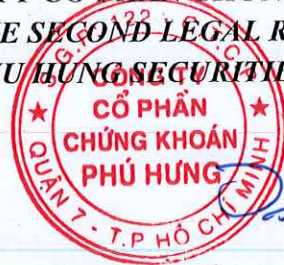 E SECOND LEGAL R
U HUNG SECURITIE
CÔNG TY
CỔ PHẦN
CHỨNG KHOÁN
PHÚ HƯNG
QUẬN 7 - T.P HỒ CHÍ MINH